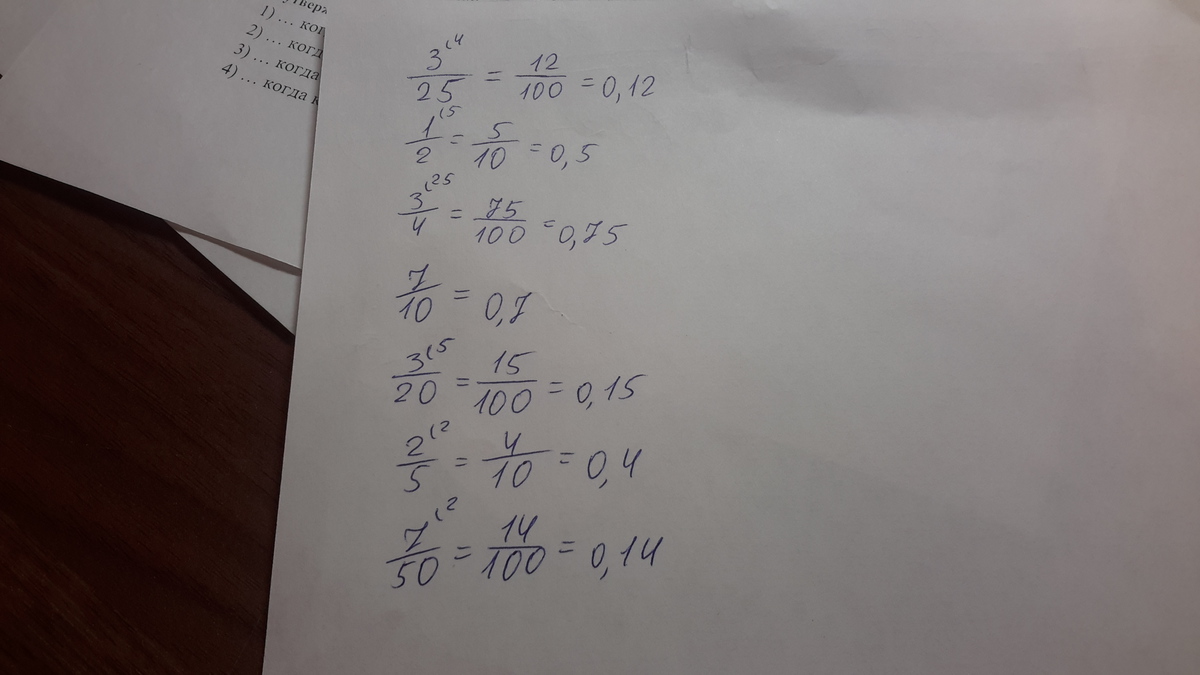 1) ...
2) ...
3) ... когда
4) ... когда
3⁽⁴/25 = 12/100 = 0,12
1⁽⁵/2 = 5/10 = 0,5
3⁽²⁵/4 = 75/100 = 0,75
7/10 = 0,7
3⁽⁵/20 = 15/100 = 0,15
2⁽²/5 = 4/10 = 0,4
7⁽²/50 = 14/100 = 0,14